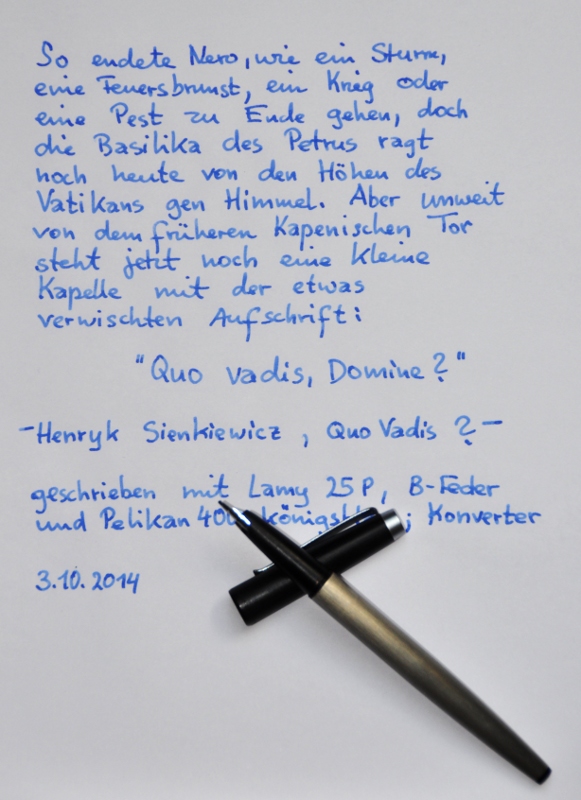 So endete Nero, wie ein Sturm,
eine Feuersbrunst, ein Krieg oder
eine Pest zu Ende gehen, doch
die Basilika des Petrus ragt
noch heute von den Höhen des
Vatikans gen Himmel. Aber unweit
von dem früheren Kapenischen Tor
steht jetzt noch eine kleine
Kapelle mit der etwas
verwischten Aufschrift:
"Quo vadis, Domine?"
-Henryk Sienkiewicz, Quo Vadis?-
geschrieben mit Lamy 25P, B-Feder
und Pelikan ; Konverter
3.10.2014